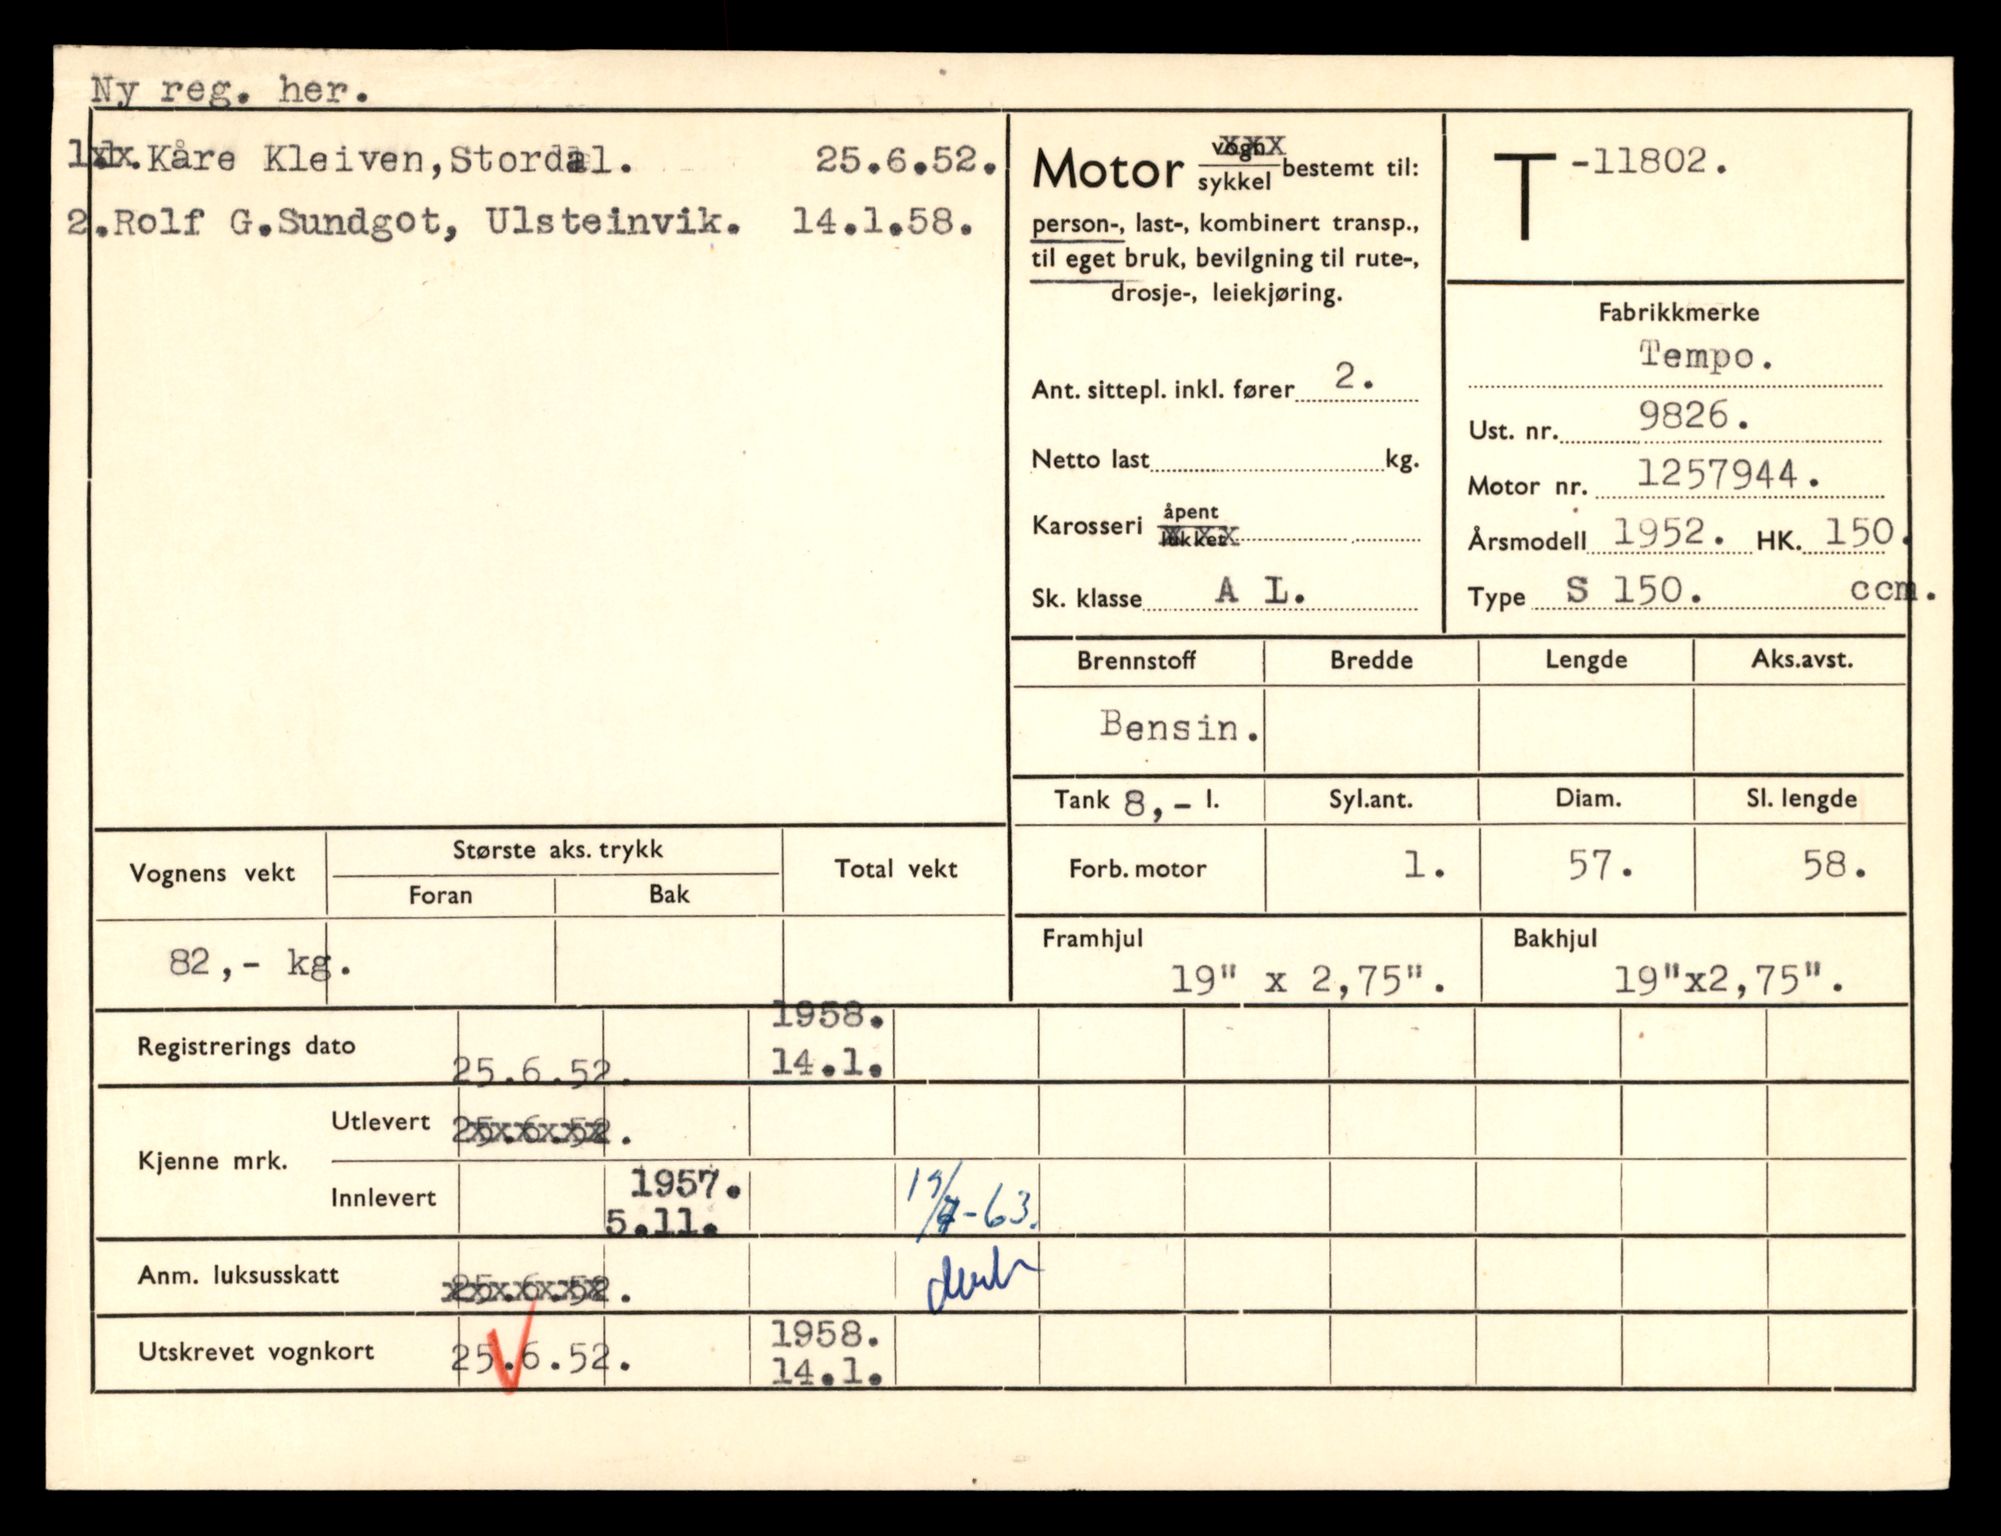 Ny reg. her.
1. Kåre Kleiven, Stordal. 25.6.52.
2. Rolf G. Sundgot, Ulsteinvik. 14.1.58.
Motor vogn sykkel bestemt til:
person-, last-, kombinert transp.,
til eget bruk, bevilgning til rute-,
drosje-, leiekjøring.
Ant. sittepl. inkl. fører 2.
Netto last kg.
Karosseri åpent lukket
Sk. klasse A L.
T -11802.
Fabrikkmerke
Tempo.
Ust. nr. 9826.
Motor nr. 1257944.
Årsmodell 1952. HK. 150.
Type S 150. ccm.
Brennstoff Bredde Lengde Aks.avst.
Bensin.
Tank 8,- l. Syl.ant. Diam. Sl. lengde
Forb. motor 1. 57. 58.
Framhjul Bakhjul
19" x 2,75". 19"x2,75".
Vognens vekt Største aks. trykk Total vekt
Foran Bak
82,- kg.
Registrerings dato 25.6.52. 1958. 14.1.
Kjenne mrk.
Utlevert 25.6.52.
Innlevert 1957. 5.11. -63.
Anm. luksusskatt 25.6.52.
Utskrevet vognkort 25.6.52. 1958. 14.1.